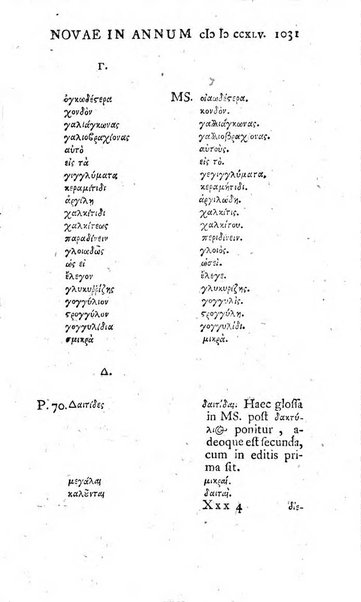 NOVAE IN ANNUM cIↃ IↃ CCXLV. 1031
Γ.
ὀγκωδέστερα MS. οἰαωδέστερα.
χονδὸν κονδὸν.
γαλιάγκωνας γαλιάγκωνας.
γαλιοβραχίονας γαλιοβραχίονας.
αὐτὸ αὐτούς.
εἰς τὰ εἰς.
γιγγλύματα γεγιγγλύματα.
κεραμίτιδι κεραμήτιδι.
ἀργίλη ἀργιλώδη.
χαλκίτιδι χαλκίτις.
χαλκίτεως χαλκίτου.
παραδίνειν περιδίνειν.
γλοιαδῶς γλοιὸς.
ὡς εἰ ὡσεί.
ἔλεγον ἔλεγε.
γλυκυρρίζης γλυκυρίζης.
γογγύλιον γογγυλίς.
στρογγύλον στρογγύλη.
γογγυλίδια γογγυλίδι.
σμικρὰ μικρά.
Δ.
P. 70. Δαιτίδες δαιτίδαι. Haec glossa
in MS. post δακτύ-
λιος ponitur, a-
deoque est secunda,
cum in editis pri-
ma sit.
μεγάλαι μικραί.
καλοῦνται δαιταί.
Xxx 4 δις-